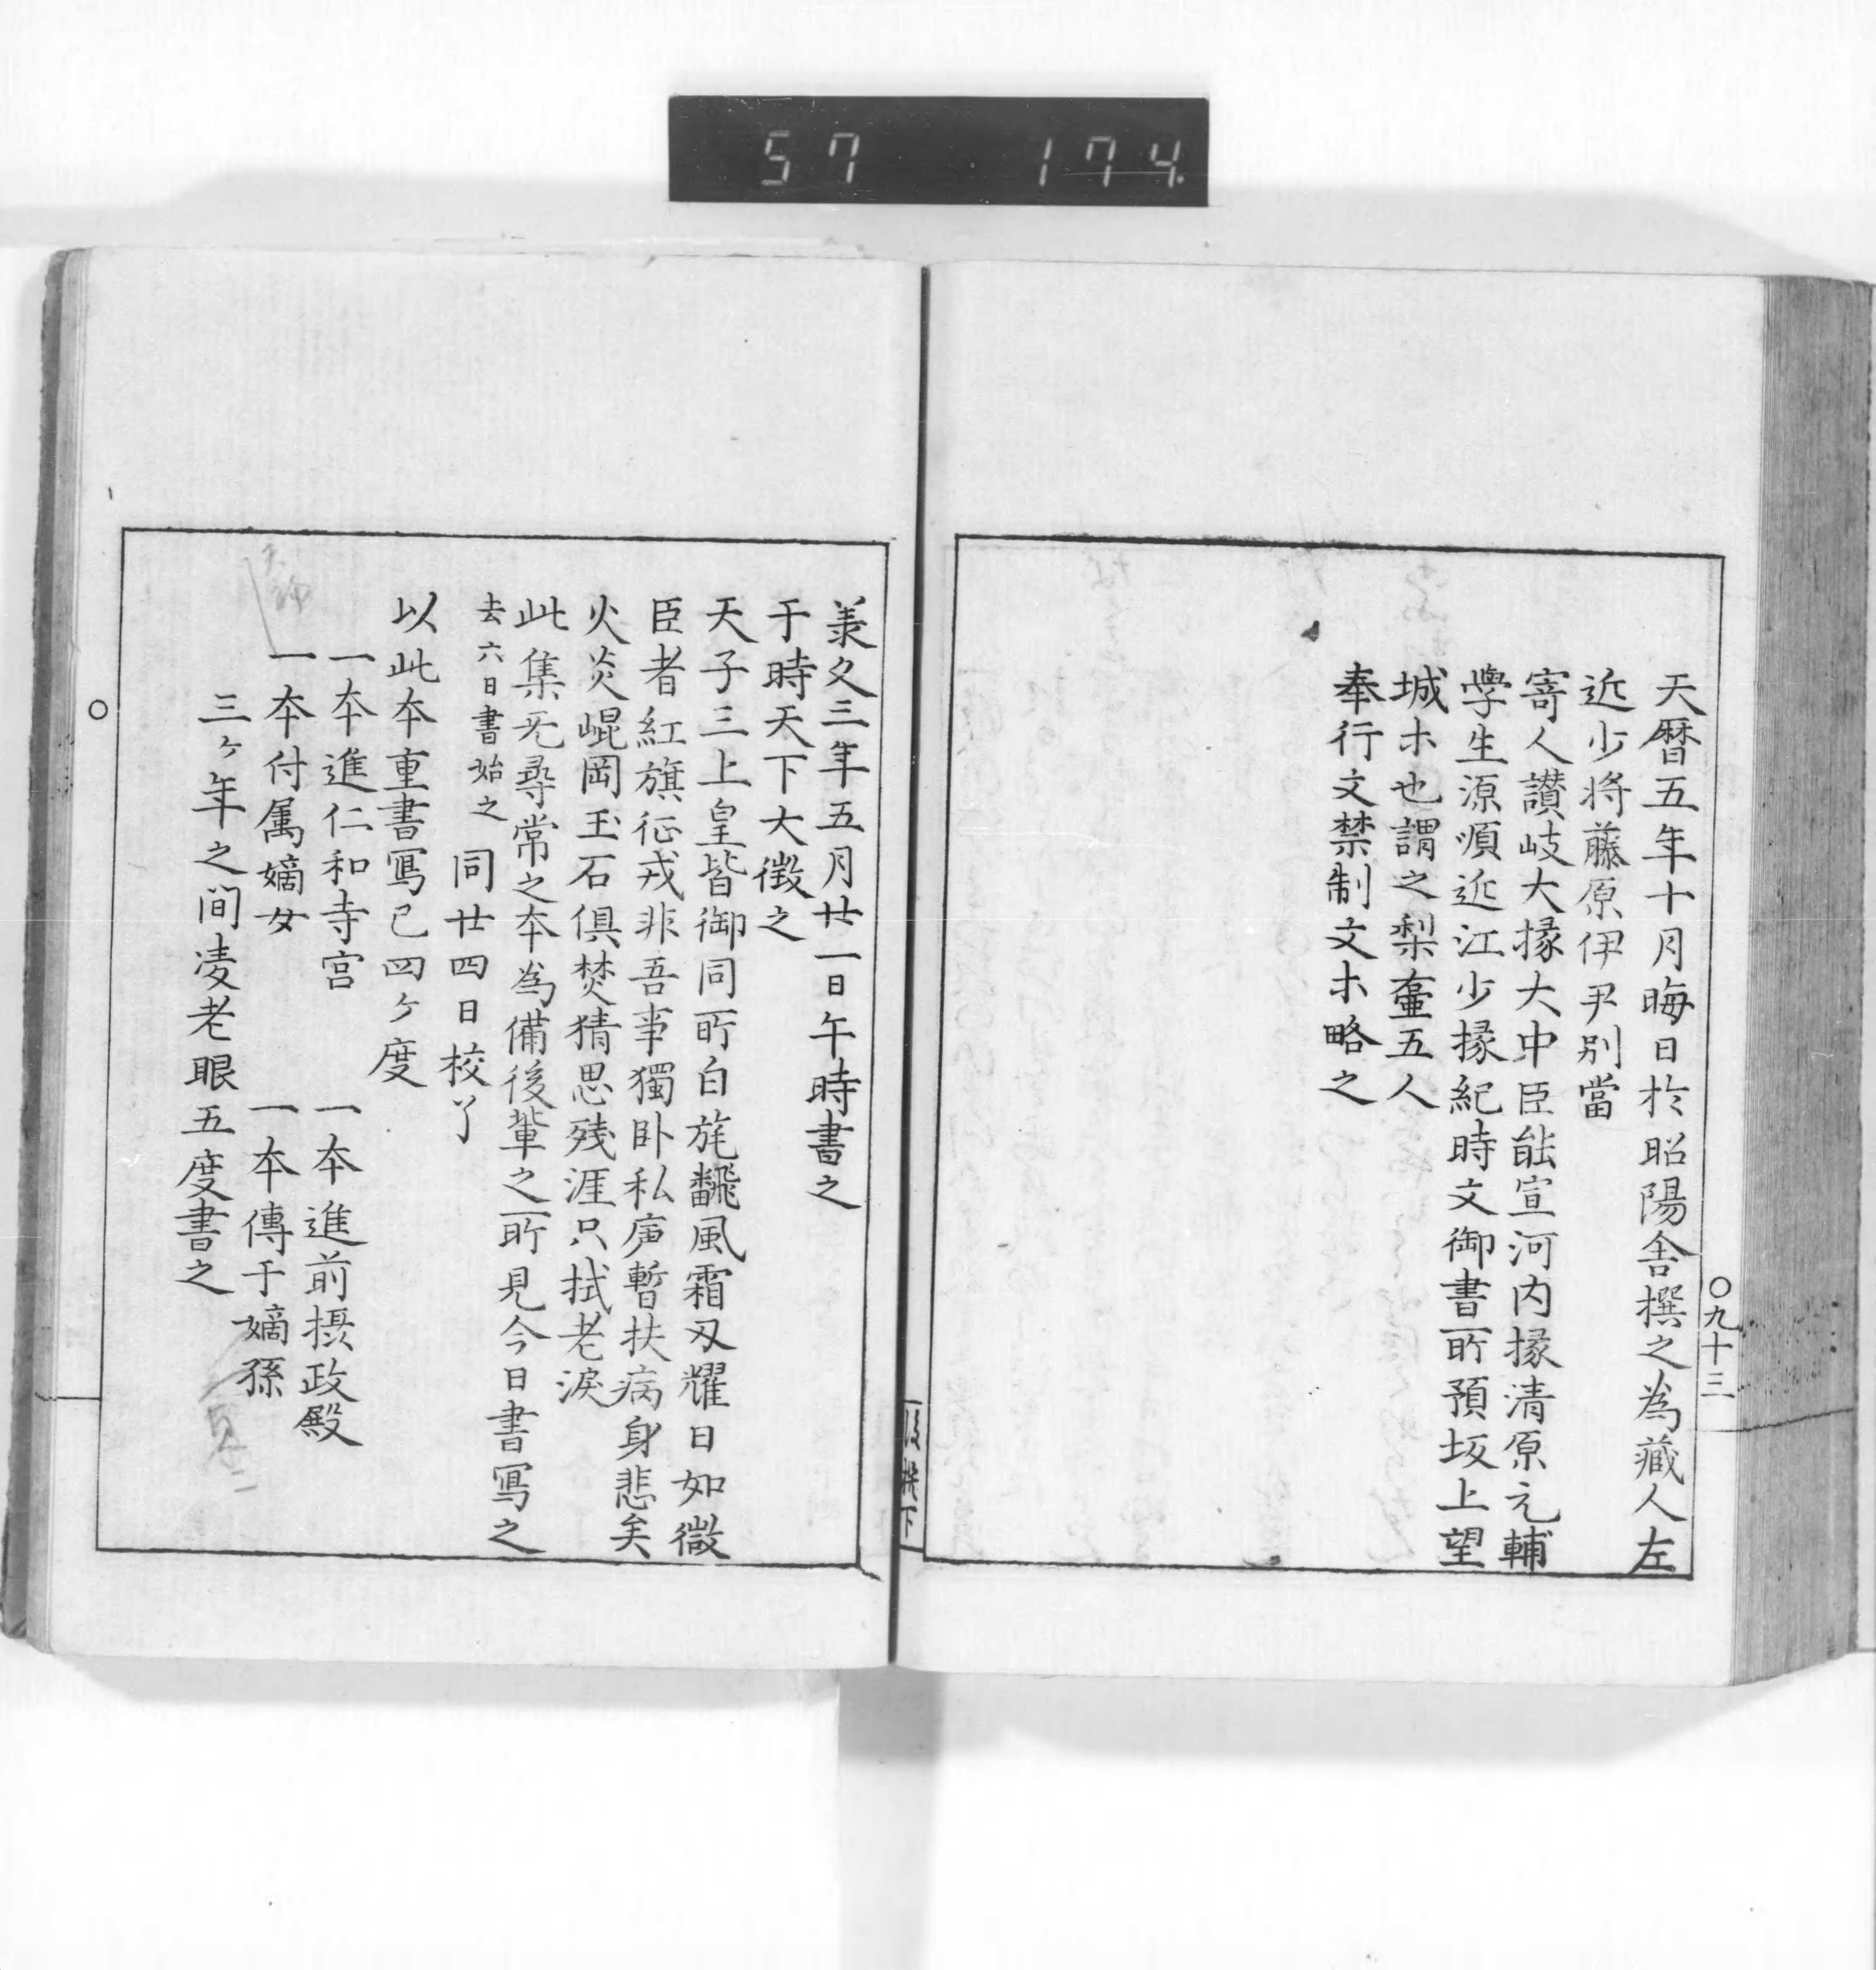 57 174
天暦五年十月晦日於昭陽舎撰之為蔵人左
近少将藤原伊尹別當
寄人讃岐大掾大中臣能宣河内掾清原元輔
學生源順近江少掾紀時文御書所預坂上望
城ホ也謂之梨壷五人
奉行文禁制文ホ略之
〇九十三
承久三年五月廿一日午時書之
于時天下大徴之
天子三上皇皆御同所白旄飜風霜刄耀日如微
臣者紅旗征戎非吾事獨卧私廬暫扶病身悲矣
火炎崐岡玉石倶焚猜思残涯只拭老淚
此集无尋常之本為備後輩之所見今日書冩之
去六日書始之 同廿四日校了
以此本重書冩已四ヶ度
一本進仁和寺宮 一本進前摂政殿
一本付属嫡女 一本傳于嫡孫
三ヶ年之間凌老眼五度書之